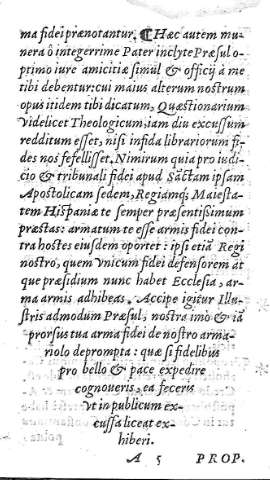 ma fidei prænotantur. ¶ Hæc autem mu-
nera ô integerrime Pater inclyte Præsul o-
ptimo iure amicitiæ simul & officij à me
tibi debentur: cui maius alterum nostrum
opus itidem tibi dicatum, Quæstionarium
videlicet Theologicum, iam diu excussum
redditum esset, nisi infida librariorum fi-
des nos fefellisset. Nimirum quia pro iudi-
cio & tribunali fidei apud Sãctam ipsam
Apostolicam sedem, Regiamq; Maiesta-
tem Hispaniæ te semper præsentissimum
præstas: armatum te esse armis fidei con-
tra hostes eiusdem oportet: ipsi etiã Regi
nostro, quem vnicum fidei defensorem at
que præsidium nunc habet Ecclesia, ar-
ma armis adhibeas. Accipe igitur Illu-
stris admodum Præsul, nostra imo & iã
prorsus tua arma fidei de nostro arma-
riolo deprompta: quæ si fidelibus
pro bello & pace expedire
cognoueris, ea feceris
vt in publicum ex-
cussa liceat ex-
hiberi.
A 5 PROP.